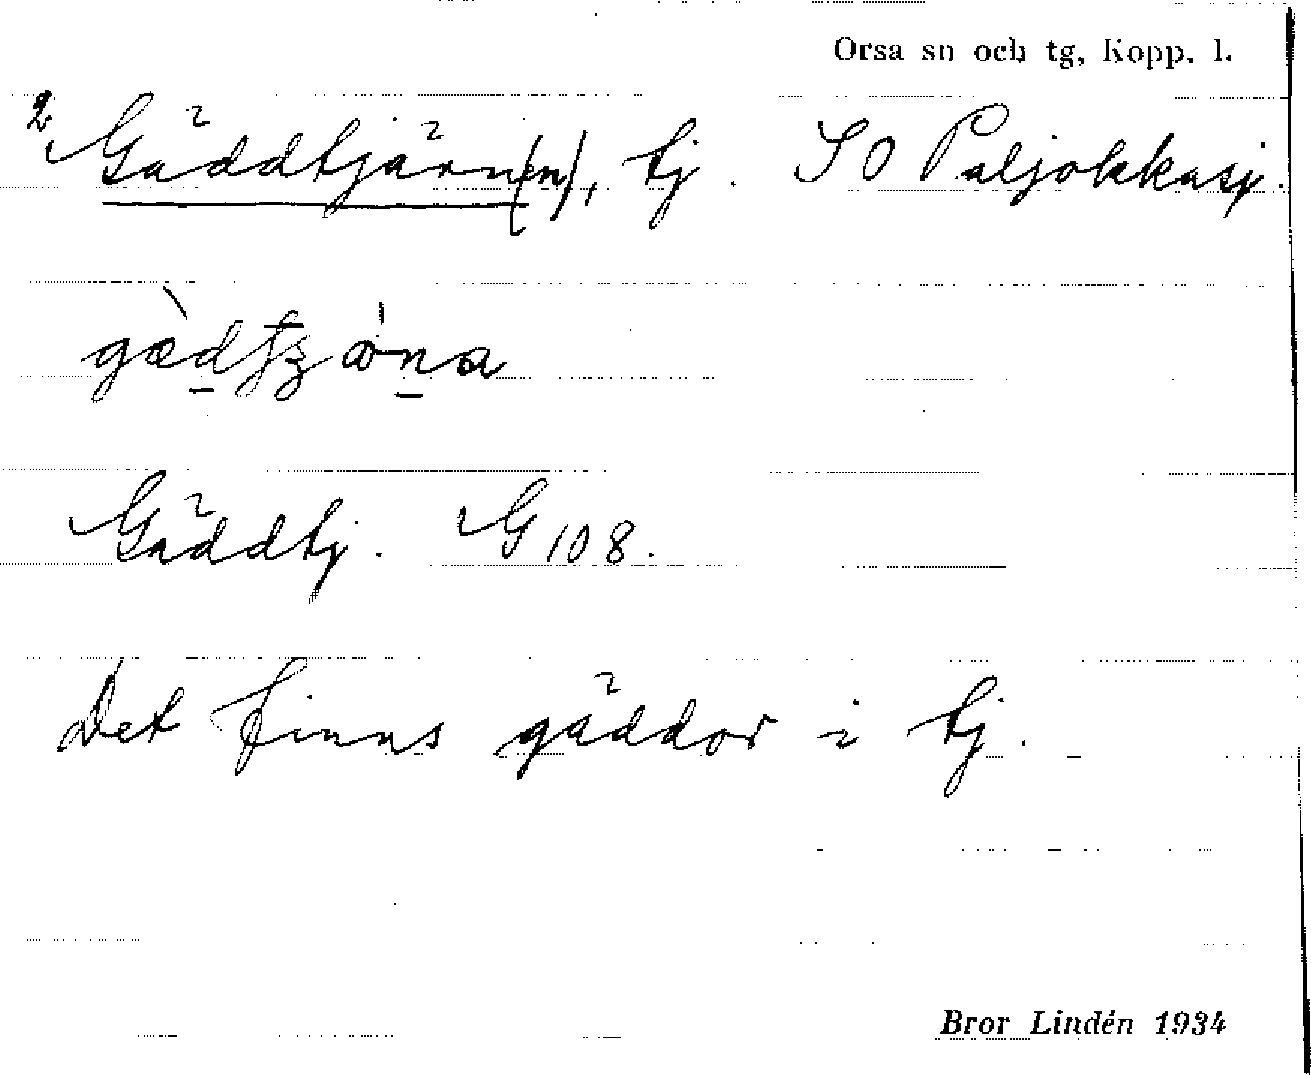 Orsa sn och tg, Kopp. l.
2 Gäddtjärn(en), tj. SO Paljokkasj.
Gäddtj. G 108.
Det finns gäddor i tj.
Bror Lindén 1934